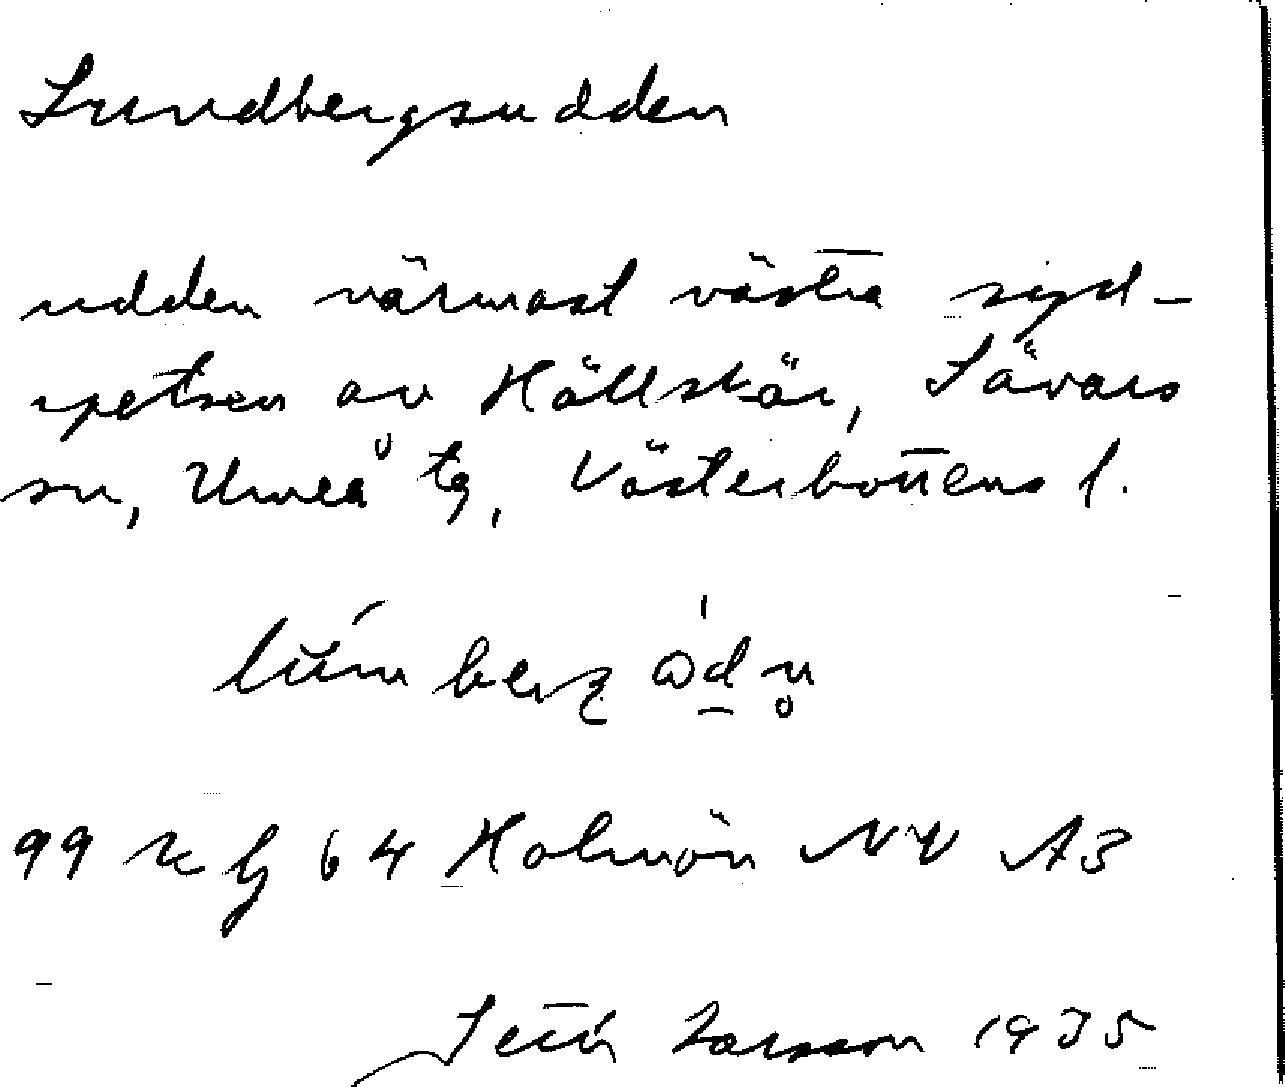 Lundbergsudden
udden närmast västra syd-
spetsen av Hällskär, Sävars
sn, Umeå tg, Västerbottens l.
99 64 Holmön NV A3
Larsson 1935